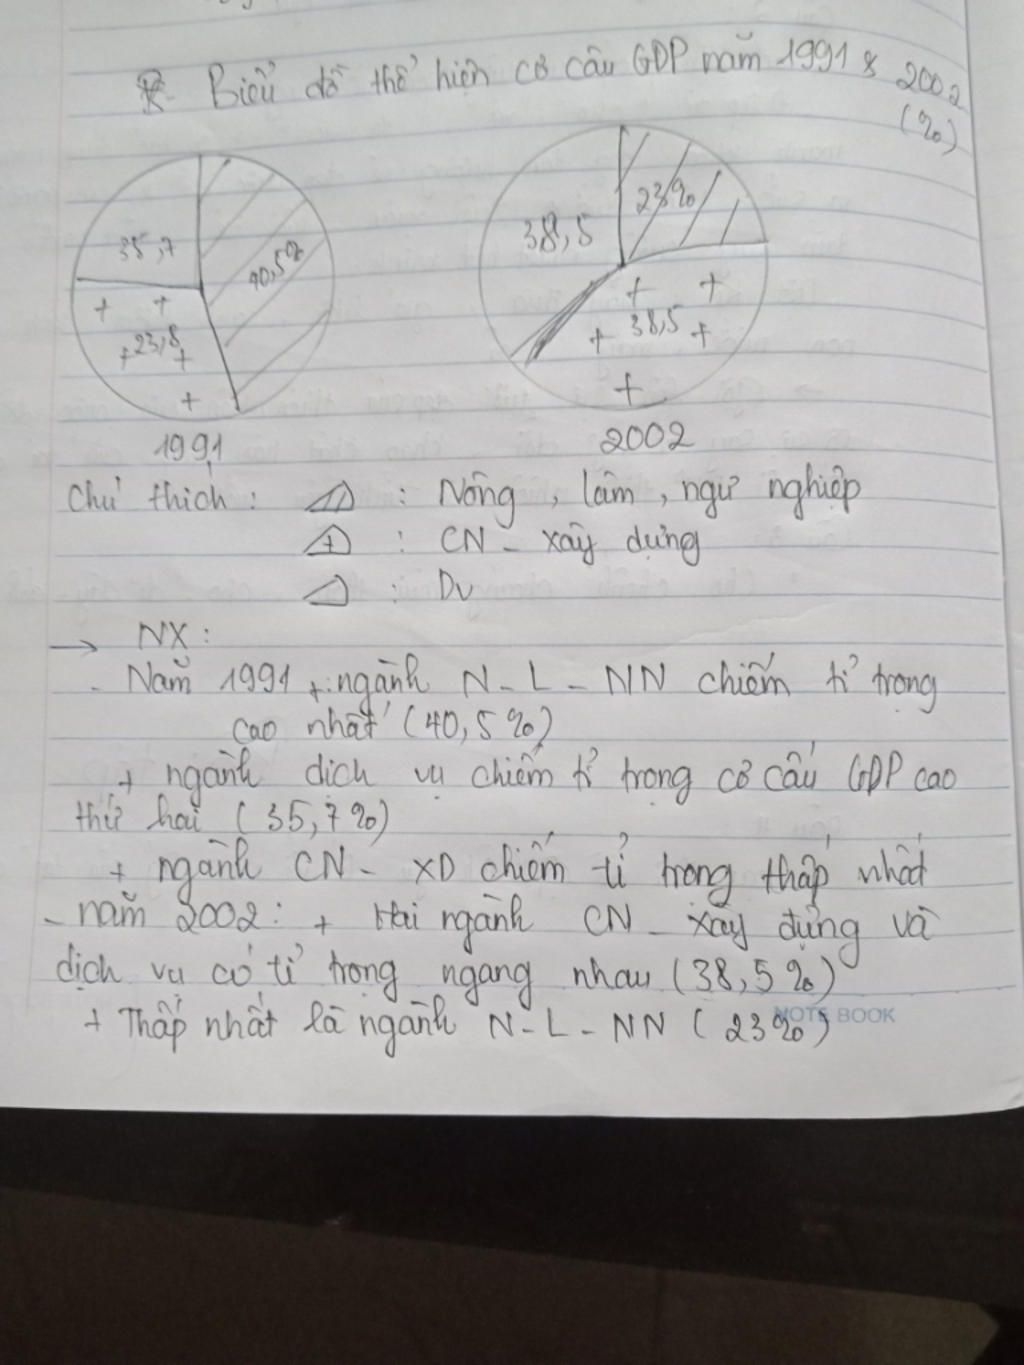 Biểu đồ thể hiện cơ cấu GDP năm 1991 & 2002
(%)
35,7
40,5%
23,8
38,5
23%
38,5
1991
2002
Chú thích : : Nông, lâm, ngư nghiệp
+ : CN - xây dựng
: Dv
→ NX :
- Năm 1991 +: ngành N - L - NN chiếm tỉ trọng
cao nhất (40,5%)
+ ngành dịch vụ chiếm tỉ trọng cơ cấu GDP cao
thứ hai (35,7%)
+ ngành CN - XD chiếm tỉ trọng thấp nhất
- năm 2002 : + Hai ngành CN - xây dựng và
dịch vụ có tỉ trọng ngang nhau (38,5%)
+ Thấp nhất là ngành N - L - NN (23%)
NOTE BOOK